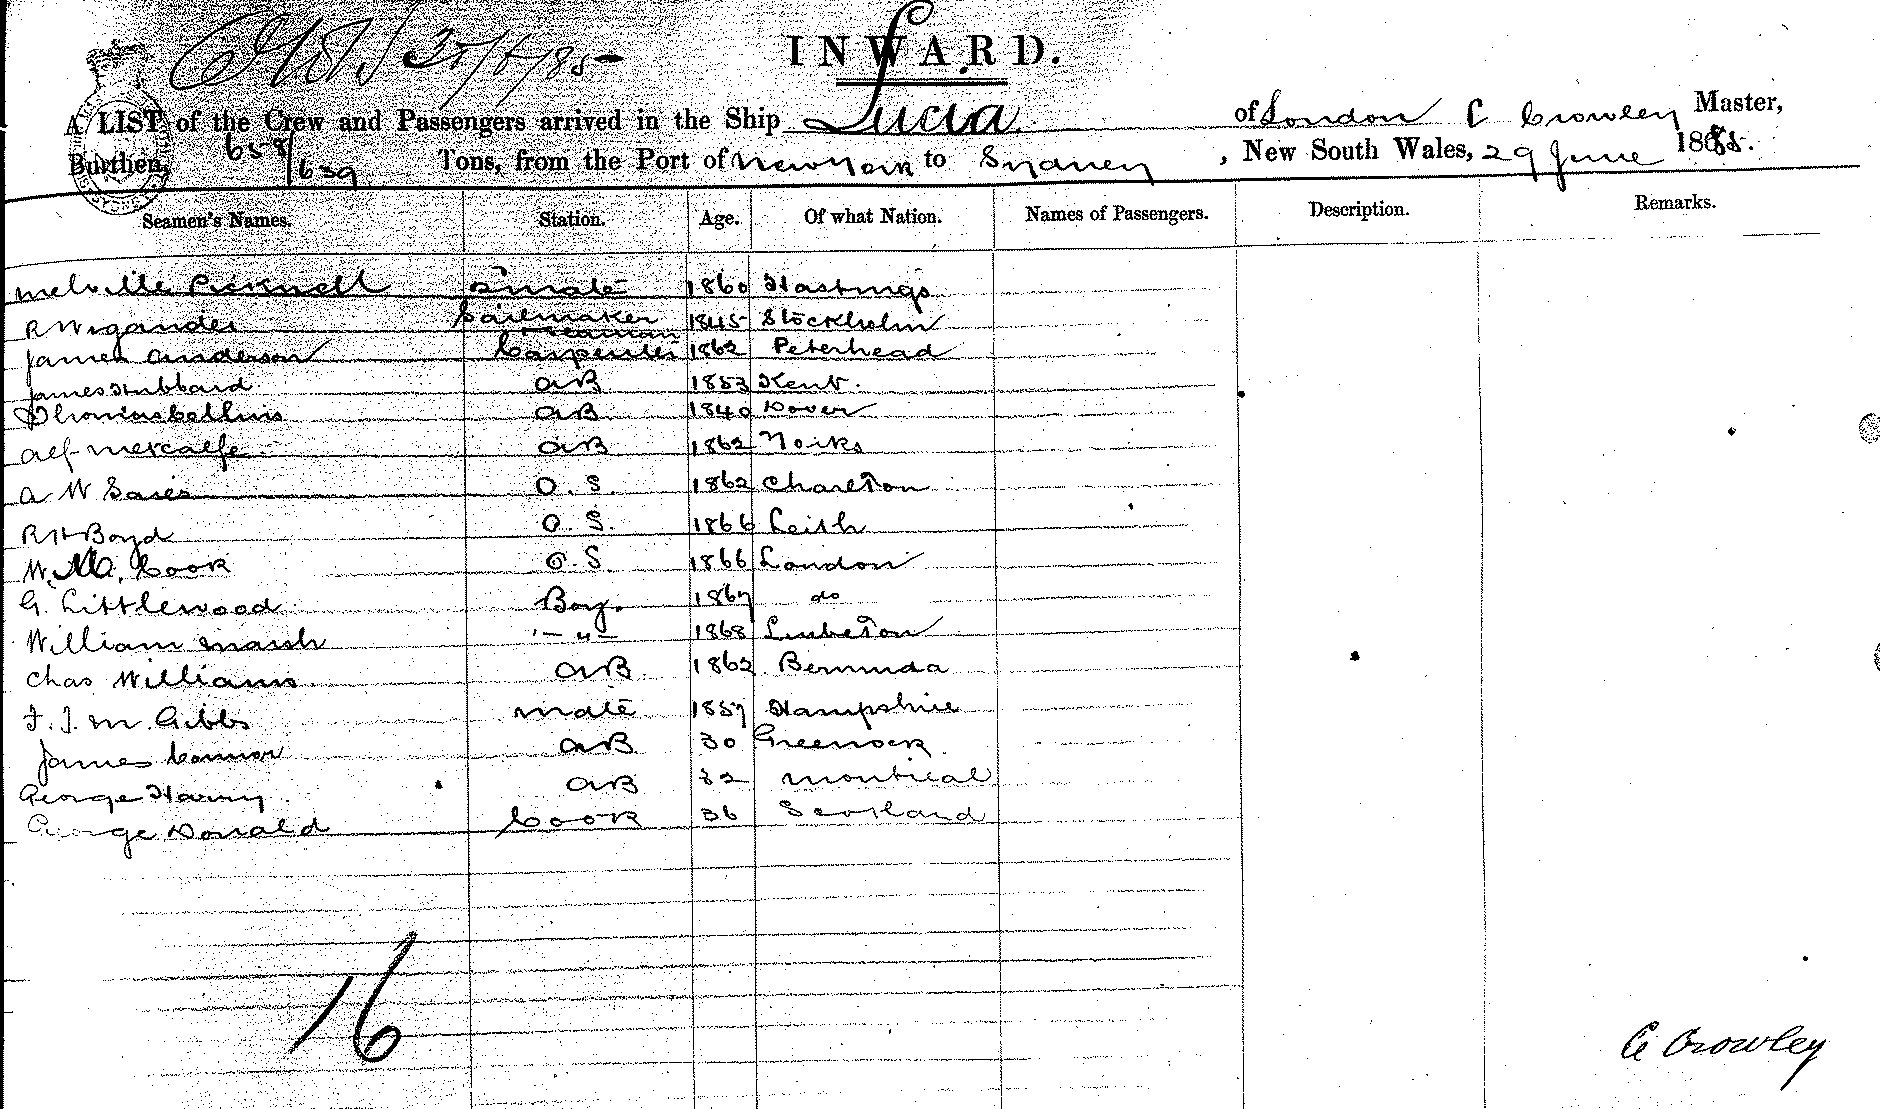 INWARD.
A LIST of the Crew and Passengers arrived in the Ship Lucia of London C Crowley Master,
Burthen, 658/639 Tons, from the Port of New York to Sydney, New South Wales, 29 June 1885.
Seamen's Names. Station. Age. Of what Nation. Names of Passengers. Description. Remarks.
Melville Picknell 2 mate 1860 Hastings
R Wigander Sailmaker Seaman 1845 Stockholm
James Anderson Carpenter 1862 Peterhead
James Hubbard AB 1853 Kent.
Thomas Collins AB 1840 Dover
Alf Metcalfe AB 1862 Yorks
A W O.S. 1862 Charlton
R H Boyd O.S. 1866 Leith
W. M. Cook O.S. 1866 London
G. Littlewood Boy. 1867 do
William Marsh -"- 1868
Chas Williams AB 1862 Bermuda
F. J. M. Gibbs mate 1857 Hampshire
James Connor AB 30 Greenock.
George Harvey AB 32 Montreal
George Donald Cook 36 Scotland
16
C Crowley